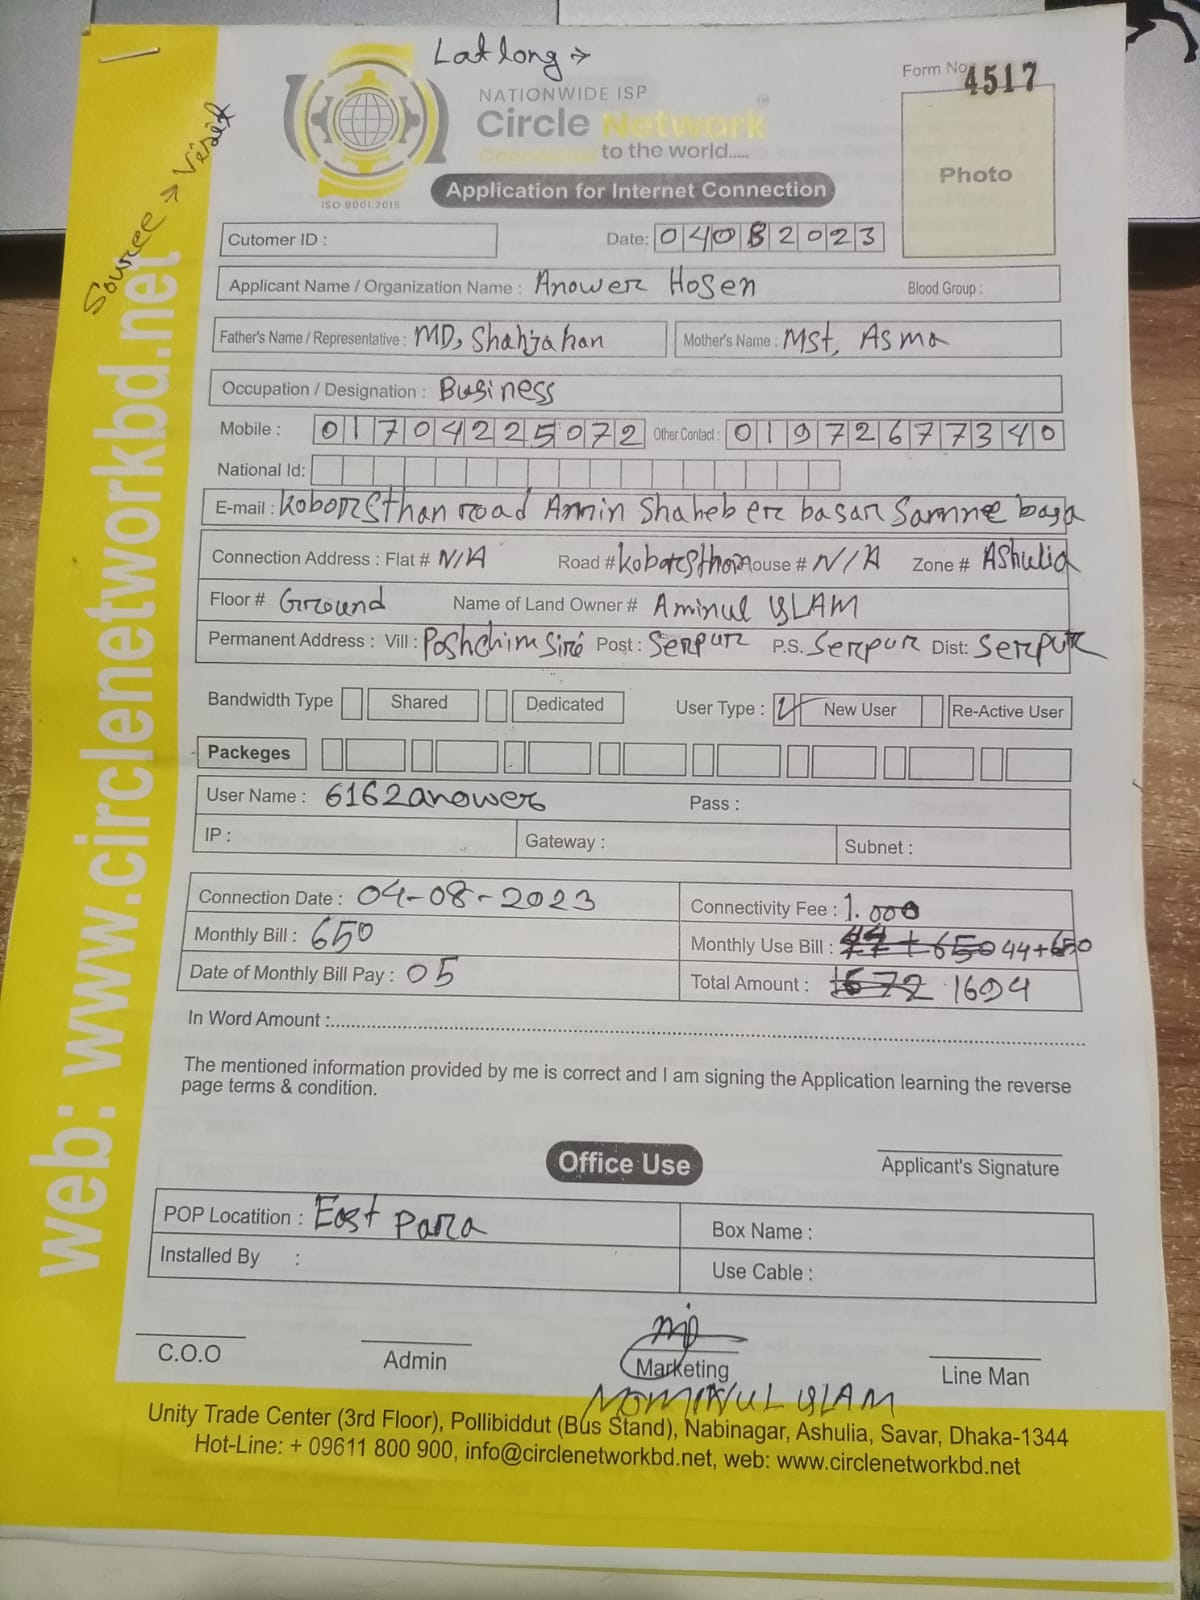 Lat long →
Source → Visit
Form No 4517
NATIONWIDE ISP
Circle Network
Connected to the world.....
ISO 9001:2015
Application for Internet Connection
Photo
Cutomer ID :
Date: 04082023
Applicant Name / Organization Name : Anower Hosen Blood Group :
Father's Name / Representative : MD, Shahjahan Mother's Name : MSt, Asma
Occupation / Designation : Business
Mobile : 01704225072 Other Contact : 01972677340
National Id:
E-mail : koborsthan road Amin Shaheb er basar Samne basa
Connection Address : Flat # N/A Road # koborsthan House # N/A Zone # Ashulia
Floor # Ground Name of Land Owner # Aminul ISLAM
Permanent Address : Vill : Poshchim Siri Post : Serpur P.S. Serpur Dist: Serpur
Bandwidth Type Shared Dedicated User Type : New User Re-Active User
Packeges
User Name : 6162anower Pass :
IP : Gateway : Subnet :
Connection Date : 04-08-2023 Connectivity Fee : 1.000
Monthly Bill : 650 Monthly Use Bill : 44+650
Date of Monthly Bill Pay : 05 Total Amount : 1672 1694
In Word Amount :
The mentioned information provided by me is correct and I am signing the Application learning the reverse
page terms & condition.
Applicant's Signature
Office Use
POP Locatition : East para Box Name :
Installed By : Use Cable :
C.O.O Admin Marketing Line Man
MOMINUL ISLAM
Unity Trade Center (3rd Floor), Pollibiddut (Bus Stand), Nabinagar, Ashulia, Savar, Dhaka-1344
Hot-Line: + 09611 800 900, info@circlenetworkbd.net, web: www.circlenetworkbd.net
web: www.circlenetworkbd.net